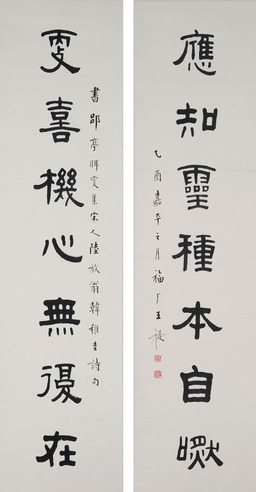 應知靈種本自
乙酉嘉平之月福厂王禔
書郘亭眲叟集宋人陸放翁韓稚圭詩句
更喜機心無復在